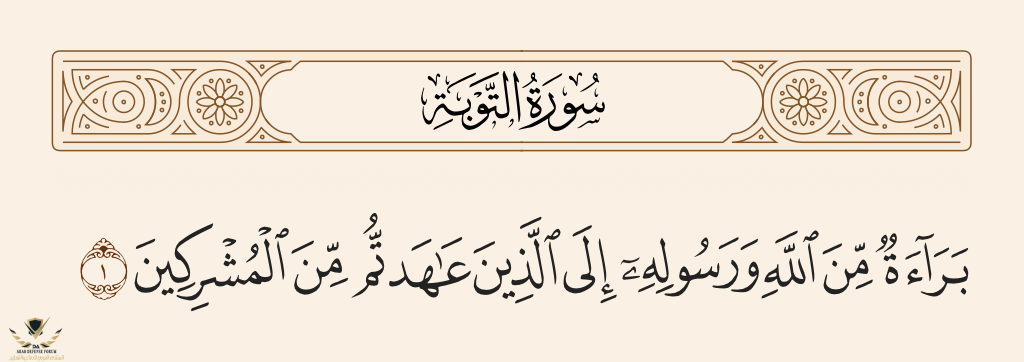 سُورَةُ التَّوْبَةِ
بَرَآءَةٌ مِّنَ ٱللَّهِ وَرَسُولِهِۦٓ إِلَى ٱلَّذِينَ عَـٰهَدتُّم مِّنَ ٱلْمُشْرِكِينَ ١
DA
ARAB DEFENSE FORUM